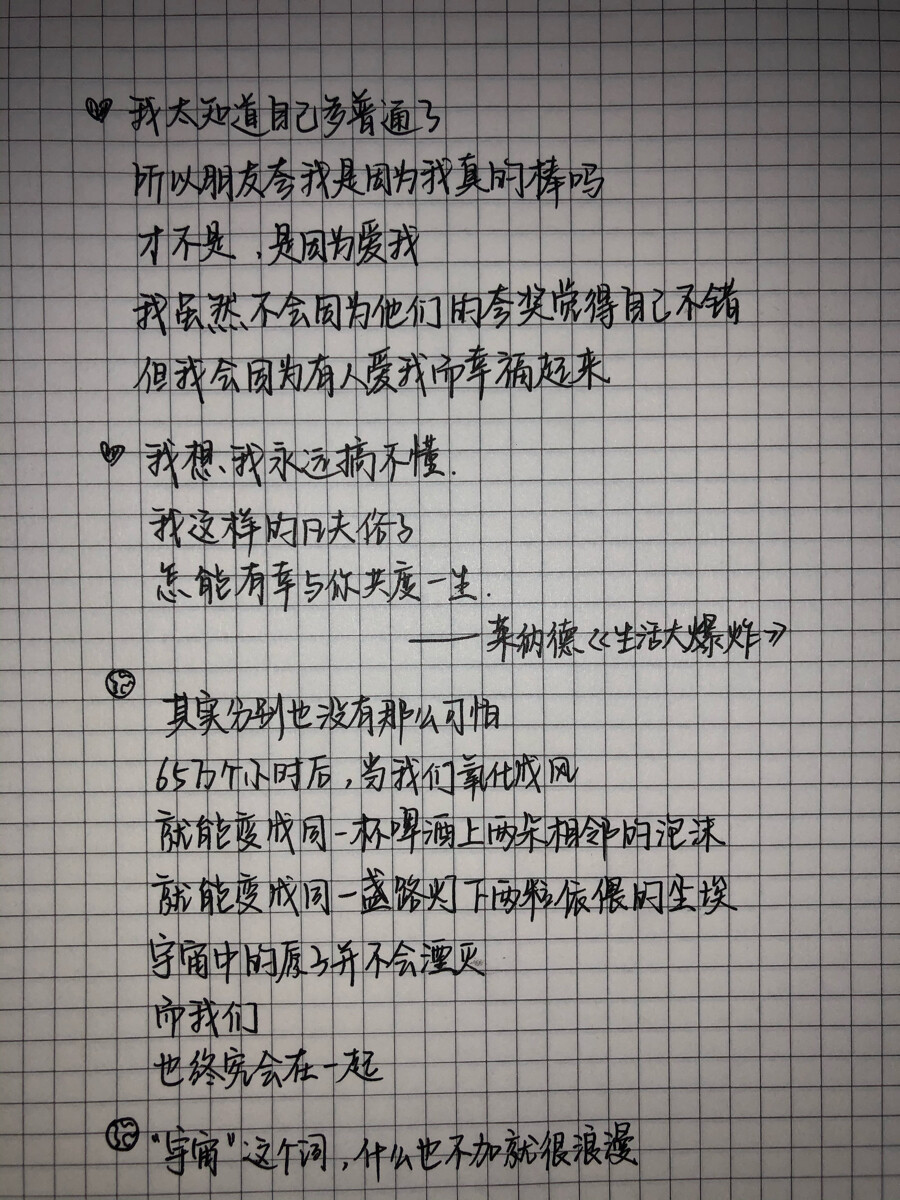 我太知道自己多普通了
所以朋友夸我是因为我真的棒吗
才不是，是因为爱我
我虽然不会因为他们的夸奖觉得自己不错
但我会因为有人爱我而幸福起来
我想、我永远搞不懂.
我这样的凡夫俗子
怎能有幸与你共度一生.
——莱纳德《生活大爆炸》
其实分别也没有那么可怕
65万个小时后，当我们氧化成风
就能变成同一杯啤酒上两朵相邻的泡沫
就能变成同一盏路灯下两粒依偎的尘埃
宇宙中的原子并不会湮灭
而我们
也终究会在一起
“宇宙”这个词，什么也不加就很浪漫